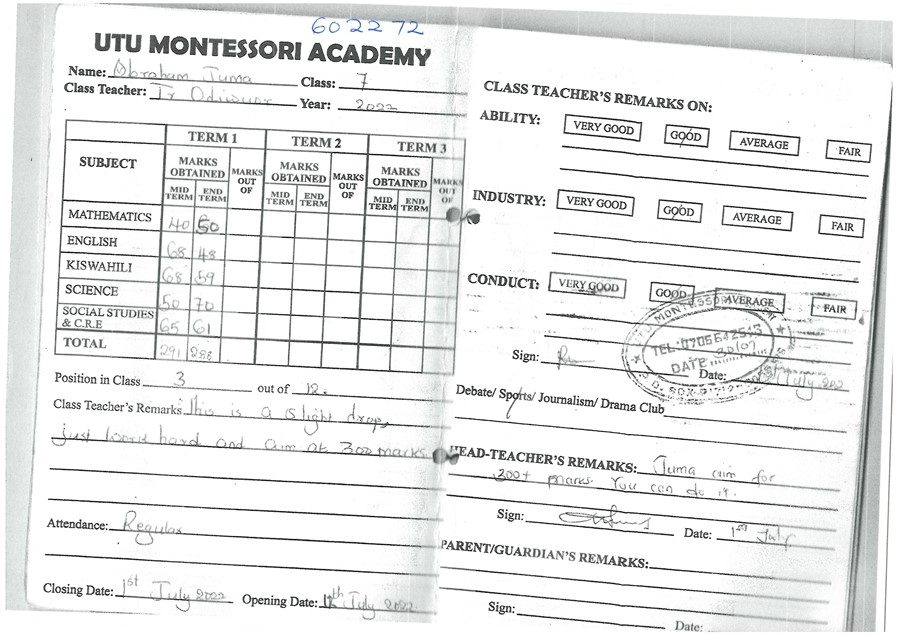 602272
UTU MONTESSORI ACADEMY
Name: Abraham Juma Class: 7
Class Teacher: Tr Odiwuor Year: 2022
SUBJECT TERM 1 TERM 2 TERM 3
MARKS OBTAINED MARKS OUT OF MARKS OBTAINED MARKS OUT OF MARKS OBTAINED MARKS OUT OF
MID TERM END TERM MID TERM END TERM MID TERM END TERM
MATHEMATICS 40 50
ENGLISH 68 48
KISWAHILI 68 59
SCIENCE 50 70
SOCIAL STUDIES & C.R.E 65 61
TOTAL 291 288
Position in Class 3 out of 12.
Class Teacher's Remarks This is a slight drop,
just work hard and aim at 300 marks.
Attendance: Regular
Closing Date: 1st July 2022 Opening Date: 12th July 2022
CLASS TEACHER'S REMARKS ON:
ABILITY: VERY GOOD GOOD AVERAGE FAIR
INDUSTRY: VERY GOOD GOOD AVERAGE FAIR
CONDUCT: VERY GOOD GOOD AVERAGE FAIR
UTU MONTESSORI
TEL: 0706642543
DATE 30/07
Sign: Date: 1st July 2022
Debate/ Sports/ Journalism/ Drama Club
HEAD-TEACHER'S REMARKS: Juma aim for
300+ marks. You can do it.
Sign: Date: 1st July
PARENT/GUARDIAN'S REMARKS:
Sign:
Date: